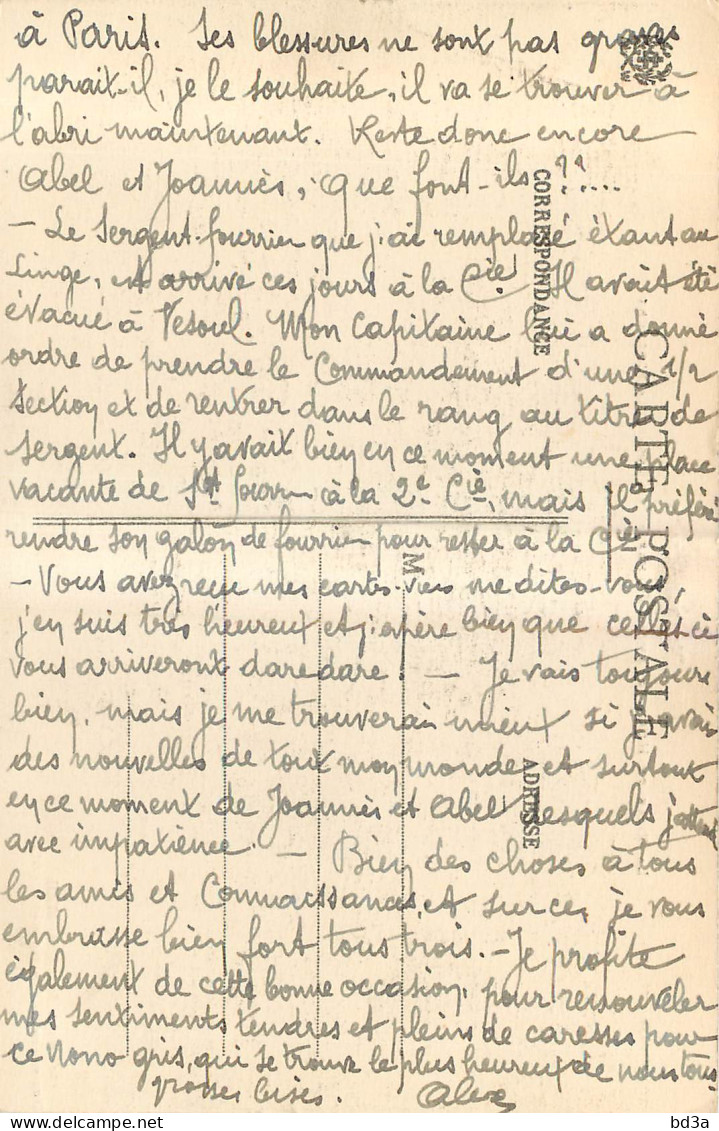 à Paris. Ses blessures ne sont pas graves
parait-il, je le souhaite, il va se trouver à
l'abri maintenant. Reste donc encore
Abel et Joannès, que font-ils ??....
- Le sergent-fourrier que j'ai remplacé étant au
Linge, est arrivé ces jours à la Cie. Il avait été
évacué à Vesoul. Mon Capitaine lui a donné
ordre de prendre le Commandement d'une 1/2
section et de rentrer dans le rang au titre de
sergent. Il y avait bien en ce moment une place
vacante de Sgt fourr à la 2e Cie, mais il préféra
rendre son galon de fourrier pour rester à la Cie
- Vous avez reçu mes cartes-vues me dites-vous,
j'en suis très heureux et j'espère bien que celles-ci
vous arriveront dare dare! - Je vais toujours
bien, mais je me trouverai mieux si j'avais
des nouvelles de tout mon monde et surtout
en ce moment de Joannès et Abel desquels j'attend
avec impatience. - Bien des choses à tous
les amis et Connaissances, et sur ce, je vous
embrasse bien fort tous trois. - Je profite
également de cette bonne occasion, pour renouveler
mes sentiments tendres et pleins de caresses pour
ce Nono gris, qui se trouve le plus heureux de nous tous
grosses bises. Alex
CORRESPONDANCE
CARTE POSTALE
M
ADRESSE
bd3a